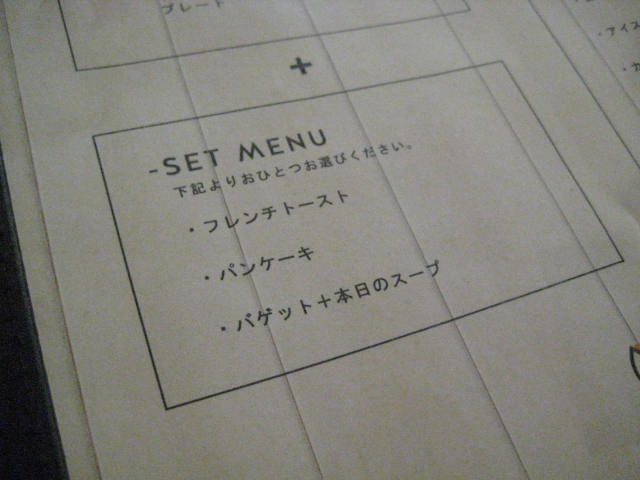 プレート
+
-SET MENU
下記よりおひとつお選びください。
・フレンチトースト
・パンケーキ
・バゲット+本日のスープ
・アイス
・カ